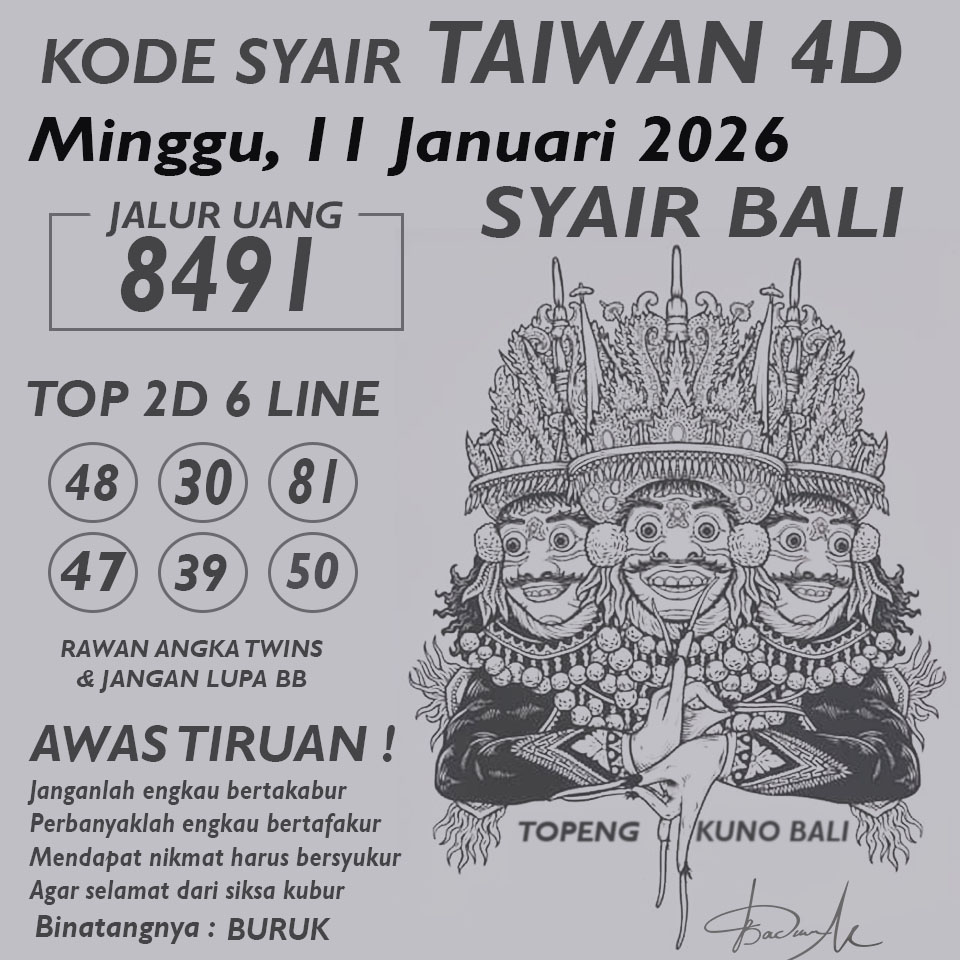 KODE SYAIR TAIWAN 4D
Minggu, 11 Januari 2026
SYAIR BALI
JALUR UANG
8491
TOP 2D 6 LINE
48 30 81
47 39 50
RAWAN ANGKA TWINS
& JANGAN LUPA BB
AWAS TIRUAN !
Janganlah engkau bertakabur
Perbanyaklah engkau bertafakur
Mendapat nikmat harus bersyukur
Agar selamat dari siksa kubur
Binatangnya : BURUK
TOPENG KUNO BALI